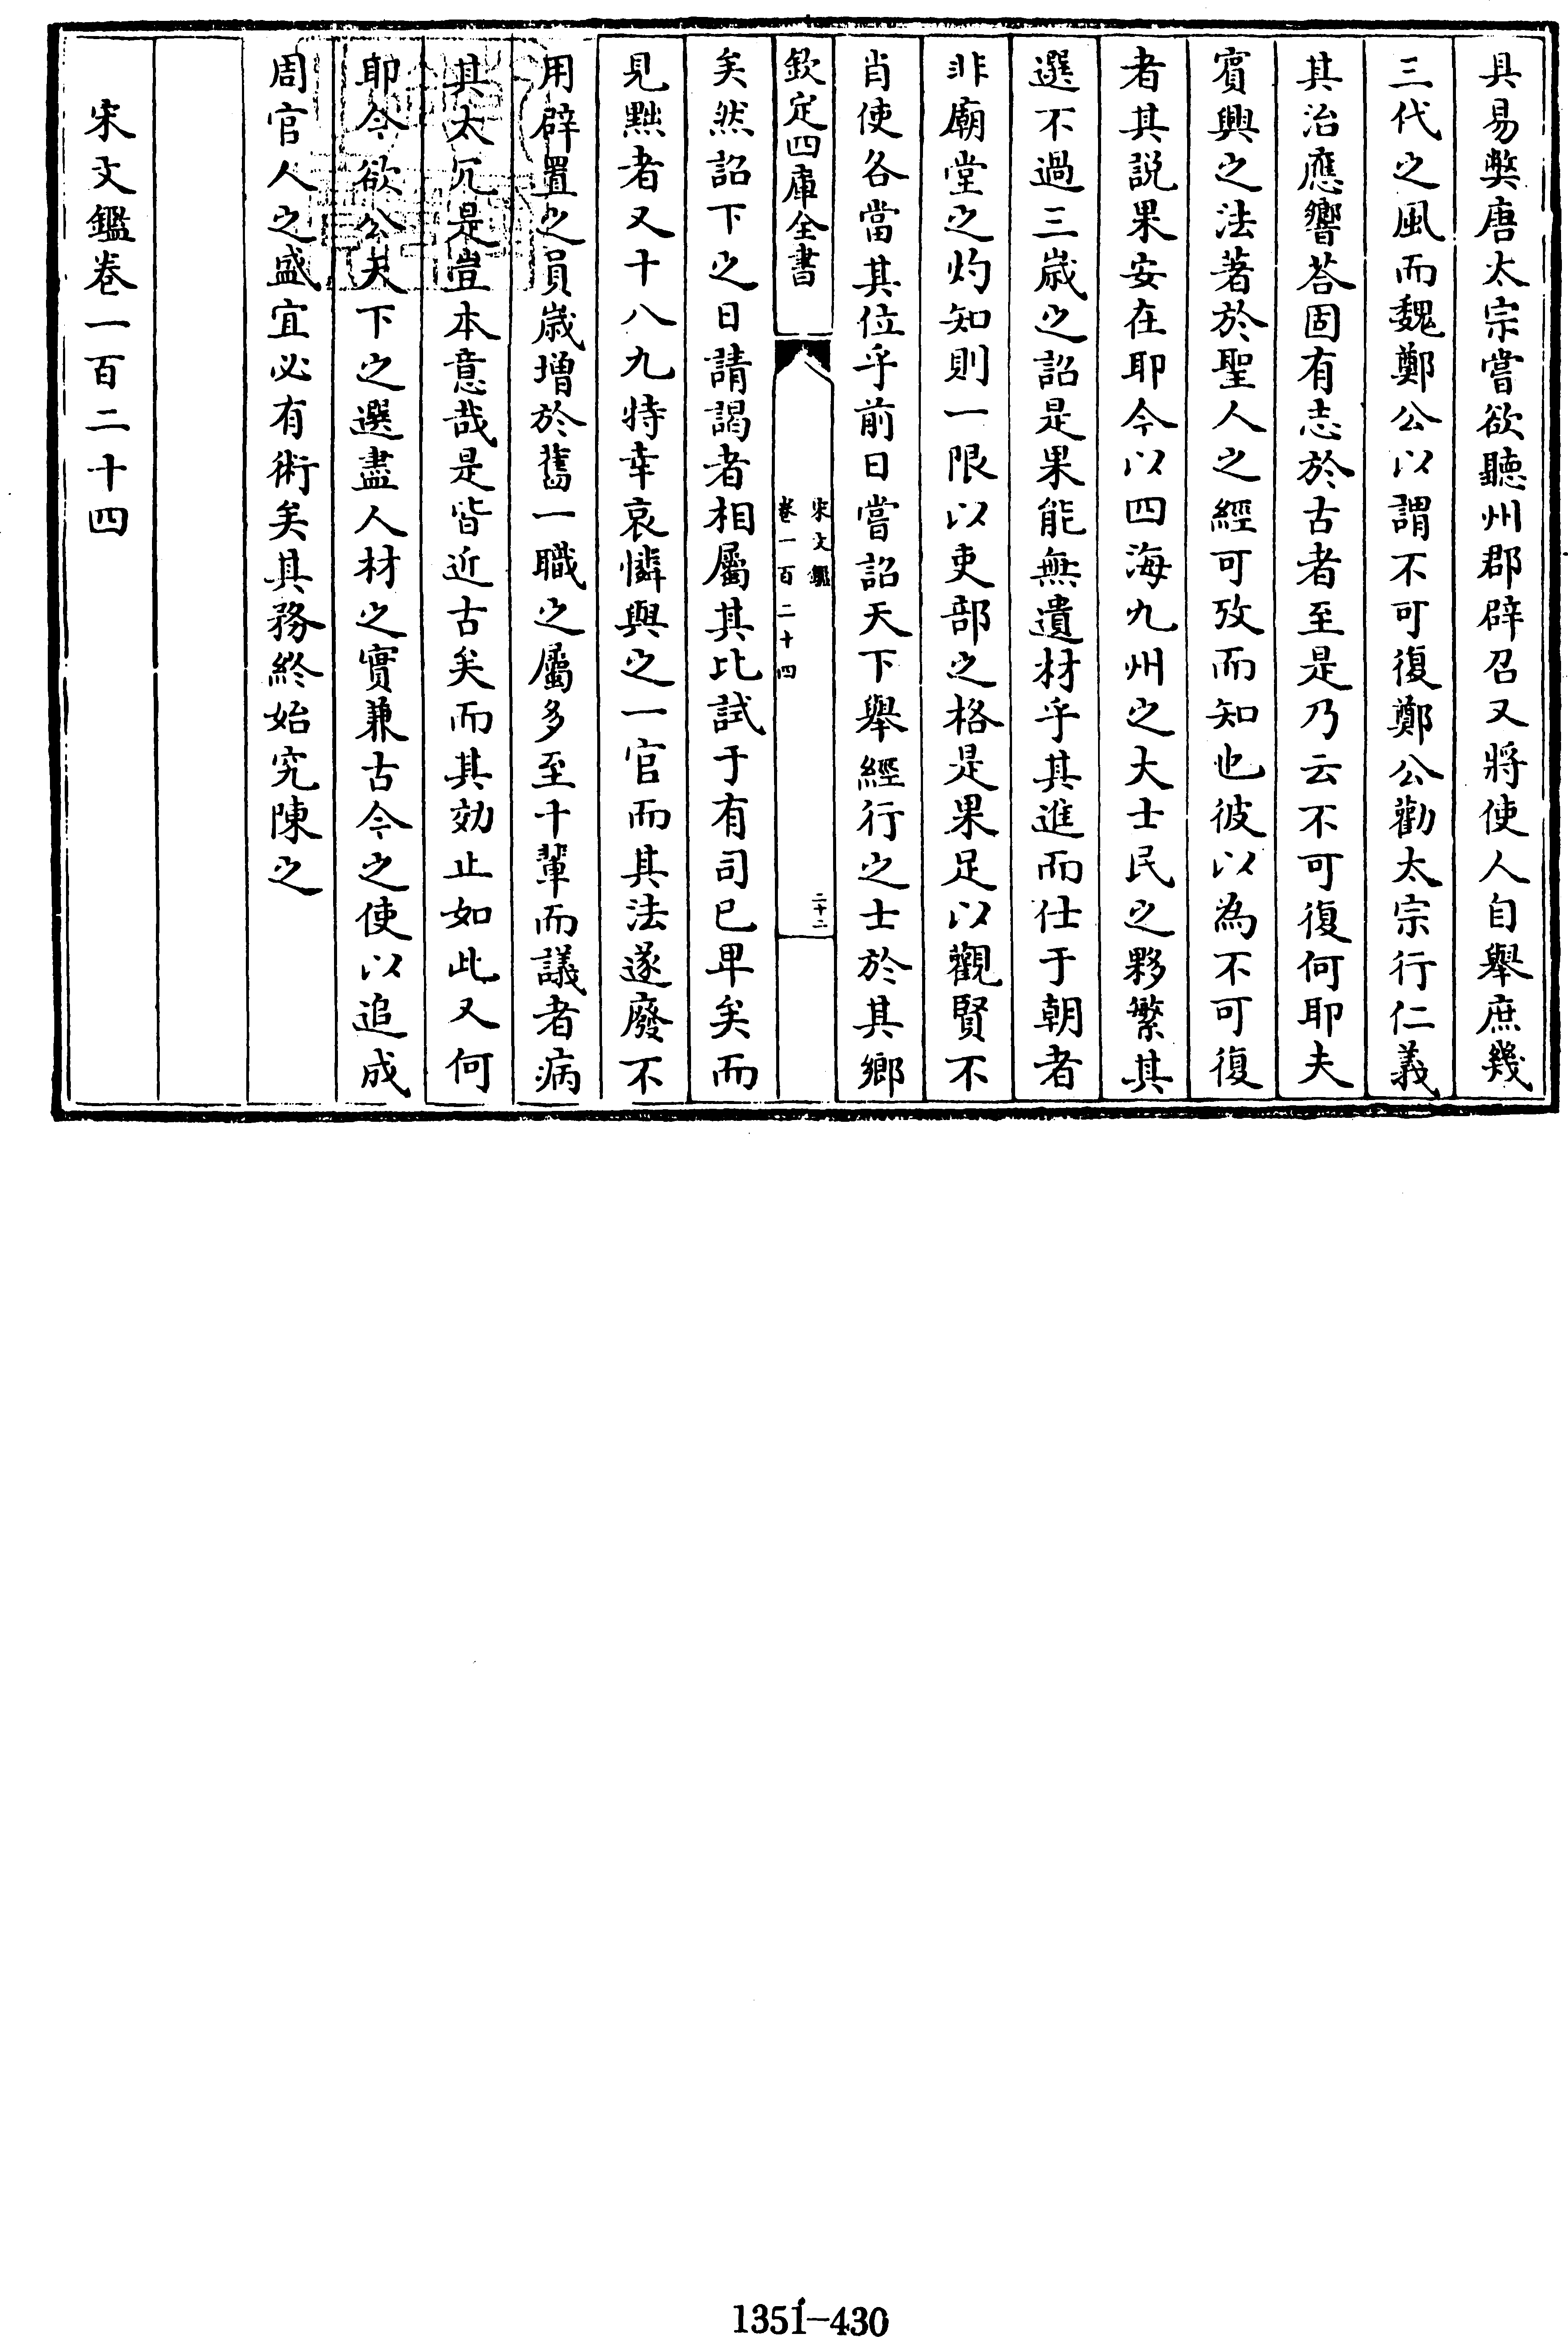 具易獘唐太宗嘗欲聽州郡辟召又將使人自舉庶幾
三代之風而魏鄭公以謂不可復鄭公勸太宗行仁義
其治應響荅固有志於古者至是乃云不可復何耶夫
賓興之法著於聖人之經可攷而知也彼以為不可復
者其説果安在耶今以四海九州之大士民之夥繁其
選不過三嵗之詔是果能無遺材乎其進而仕于朝者
非廟堂之灼知則一限以吏部之格是果足以觀賢不
肖使各當其位乎前日嘗詔天下舉經行之士於其鄉
欽定四庫全書
宋文鑑
卷一百二十四
二十二
矣然詔下之日請謁者相屬其比試于有司已卑矣而
見黜者又十八九特幸哀憐與之一官而其法遂廢不
用辟置之員嵗增於舊一職之屬多至十輩而議者病
其太冗是豈本意哉是皆近古矣而其効止如此又何
耶今欲公天下之選盡人材之實兼古今之使以追成
周官人之盛宜必有術矣其務終始究陳之
宋文鑑卷一百二十四
1351-430